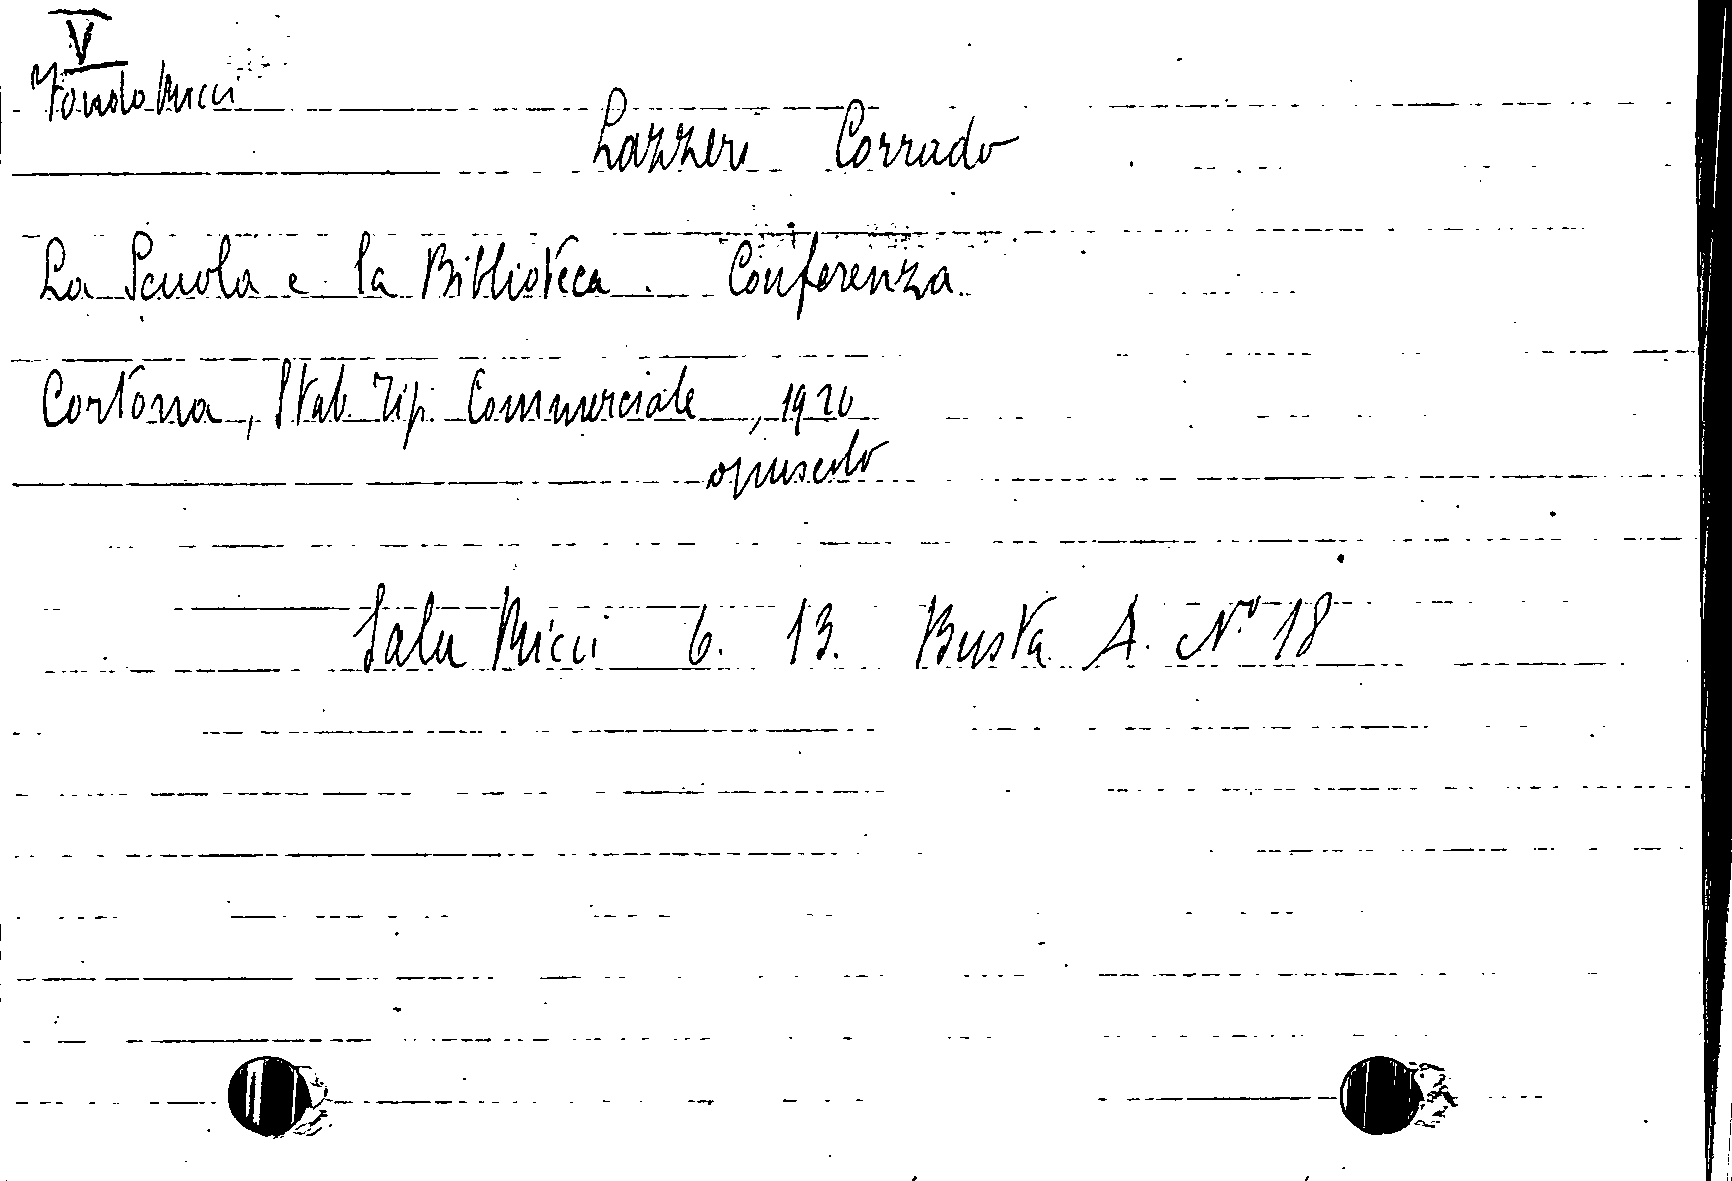 V
"Fondo Ricci"
Lazzeri Corrado
La Scuola e la Biblioteca. Conferenza.
Cortona, Stab. Tip. Commerciale, 1920
opuscolo
Sala Ricci 6. 13. Busta A. N° 18